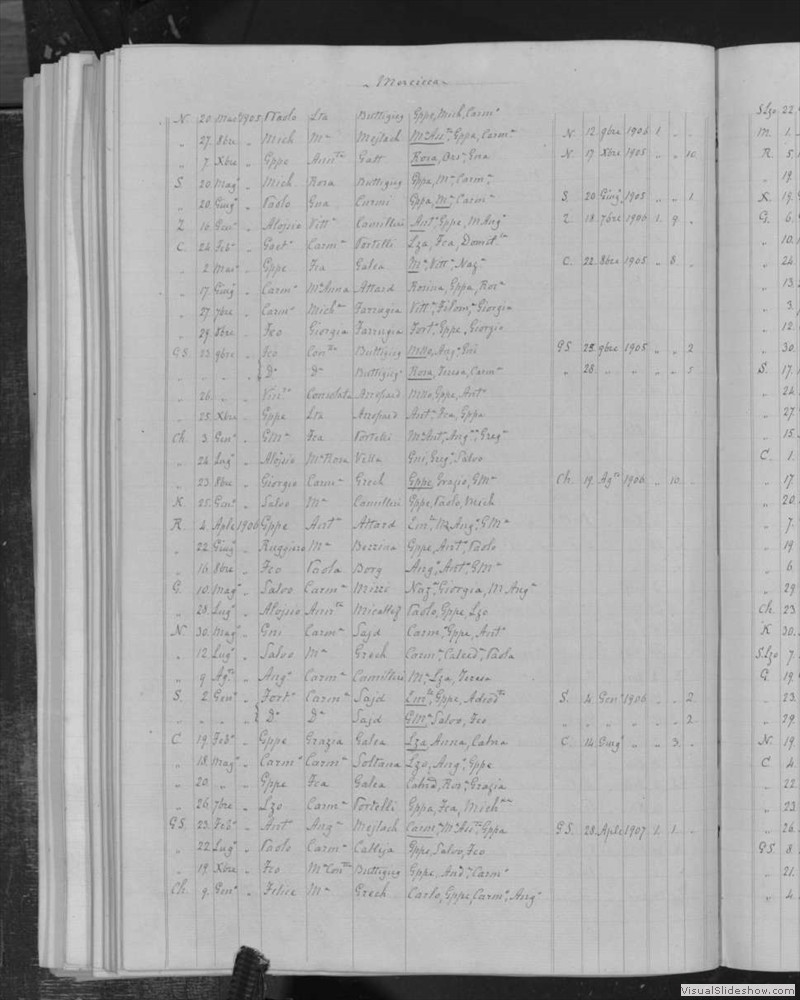 Mercieca
N. 20 Mar° 1905 Paolo Lta Buttigieg Gppe, Mich, Carm°
„ 27 8bre „ Mich Mª Mejlach Mª Antª, Gppa, Carmª N. 12 9bre 1906 1 „ „
„ 7 Xbre „ Gppe Antª Gatt Rosa, Gna N. 17 Xbre 1905 „ „ 10
S. 20 Mag° „ Mich Rosa Buttigieg Gppa, Mª, Carmª
„ 20 Giug° „ Paolo Gna Curmi Gppa, Mª, Carmª S. 20 Giug° 1905 „ „ 1
Z 16 Gen° „ Aloisio Vittª Camilleri Ant° Gppe, M Ang° Z. 18 7bre 1906 1 9 „
C. 24 Feb° „ Gaet° Carmª Portelli Lza, Fca, Domit
„ 2 Mar° „ Gppe Fca Galea Mª, Vittª, Naz° C. 22 8bre 1905 „ 8 „
„ 17 Giug° „ Carm° Mª Anna Attard Rosina, Gppa, Rosª
„ 27 7bre „ Carm° Michª Farrugia Vittª, Filomª, Giorgia
„ 29 8bre „ Fco Giorgia Farrugia Fort°, Gppe, Giorgio
GS. 23 9bre „ Fco Buttigieg Mllo, Ang°, Gni GS. 25 9bre 1905 „ „ 2
„ „ „ „ D° D° Buttigieg Rosa, Teresa, Carmª „ 28 „ „ „ „ 5
„ 26 „ „ Consolata Azzopard Mllo, Gppe, Ant°
„ 25 Xbre „ Gppe Lta Azzopard Antª, Fca, Gppa
Ch. 3 Gen° „ GMª Fca Portelli Mª Ant, Ang°, Greg°
„ 24 Lug° „ Aloisio Mª Rosa Vella Gni, Greg°, Salvo
„ 23 8bre „ Giorgio Carmª Grech Gppe, Grazio, GMª Ch. 19 Ag° 1906 „ 10 „
K. 25 Gen° „ Salvo Mª Camilleri Gppe, Paolo, Mich
R. 4 Aple 1906 Gppe Antª Attard Emª, Ang°, GMª
„ 22 Giug° „ Ruggiero Mª Bezzina Gppe, Ant°, Paolo
„ 16 8bre „ Fco Paola Borg Ang°, Ant°, GMª
G. 10 Mag° „ Salvo Carmª Mizzi Naz° Giorgia, M Ang°
„ 28 Lug° „ Aloisio Micallef Paolo, Gppe, Lzo
N. 30 Mag° „ Gni Carmª Sajd Carm°, Gppe, Ant°
„ 12 Lug° „ Salvo Mª Grech Carmª, Calced°, Paola
„ 9 Ag° „ Ang° Carmª Camilleri Mª, Lza, Teresa
S. 2 Gen° „ Fort° Carmª Sajd Gppe, Adeod S. 4 Gen° 1906 „ „ 2
„ „ „ „ D° D° Sajd GMª, Salvo, Fco „ „ „ „ „ „ 2
C. 19 Feb° „ Gppe Grazia Galea Lza, Anna, Catna C. 14 Giug° „ „ 3 „
„ 18 Mag° „ Carm° Carmª Soltana Lzo, Ang°, Gppe
„ 20 „ „ Gppe Fca Galea Calced, Ros°, Grazia
„ 26 7bre „ Lzo Carmª Portelli Gppa, Fca, Michª
GS. 23 Feb° „ Ant° Angª Mejlach Carmª, Mª Antª, Gppa GS. 28 Aple 1907 1 1 „
„ 22 Lug° „ Paolo Carmª Calleja Gppe, Salvo, Fco
„ 19 Xbre „ Fco Buttigieg Gppe, And°, Carm°
Ch. 9 Gen° „ Felice Mª Grech Carlo, Gppe, Carm°, Ang°
S.Lzo 22
M. 1
R. 5
„ 19
K. 19
G. 6
„ 10
„ 24
„ 13
„ 3
„ 12
„ 30
S. 17
„ 24
„ 27
„ 15
C. 1
„ 17
„ 20
„ 7
„ 19
„ 6
„ 29
Ch. 23
K 30
S.Lzo 7
G 19
„ 23
„ 29
N. 19
C 4
„ 22
„ 23
„ 26
GS 8
„ 21
„ 4
VisualSlideshow.com